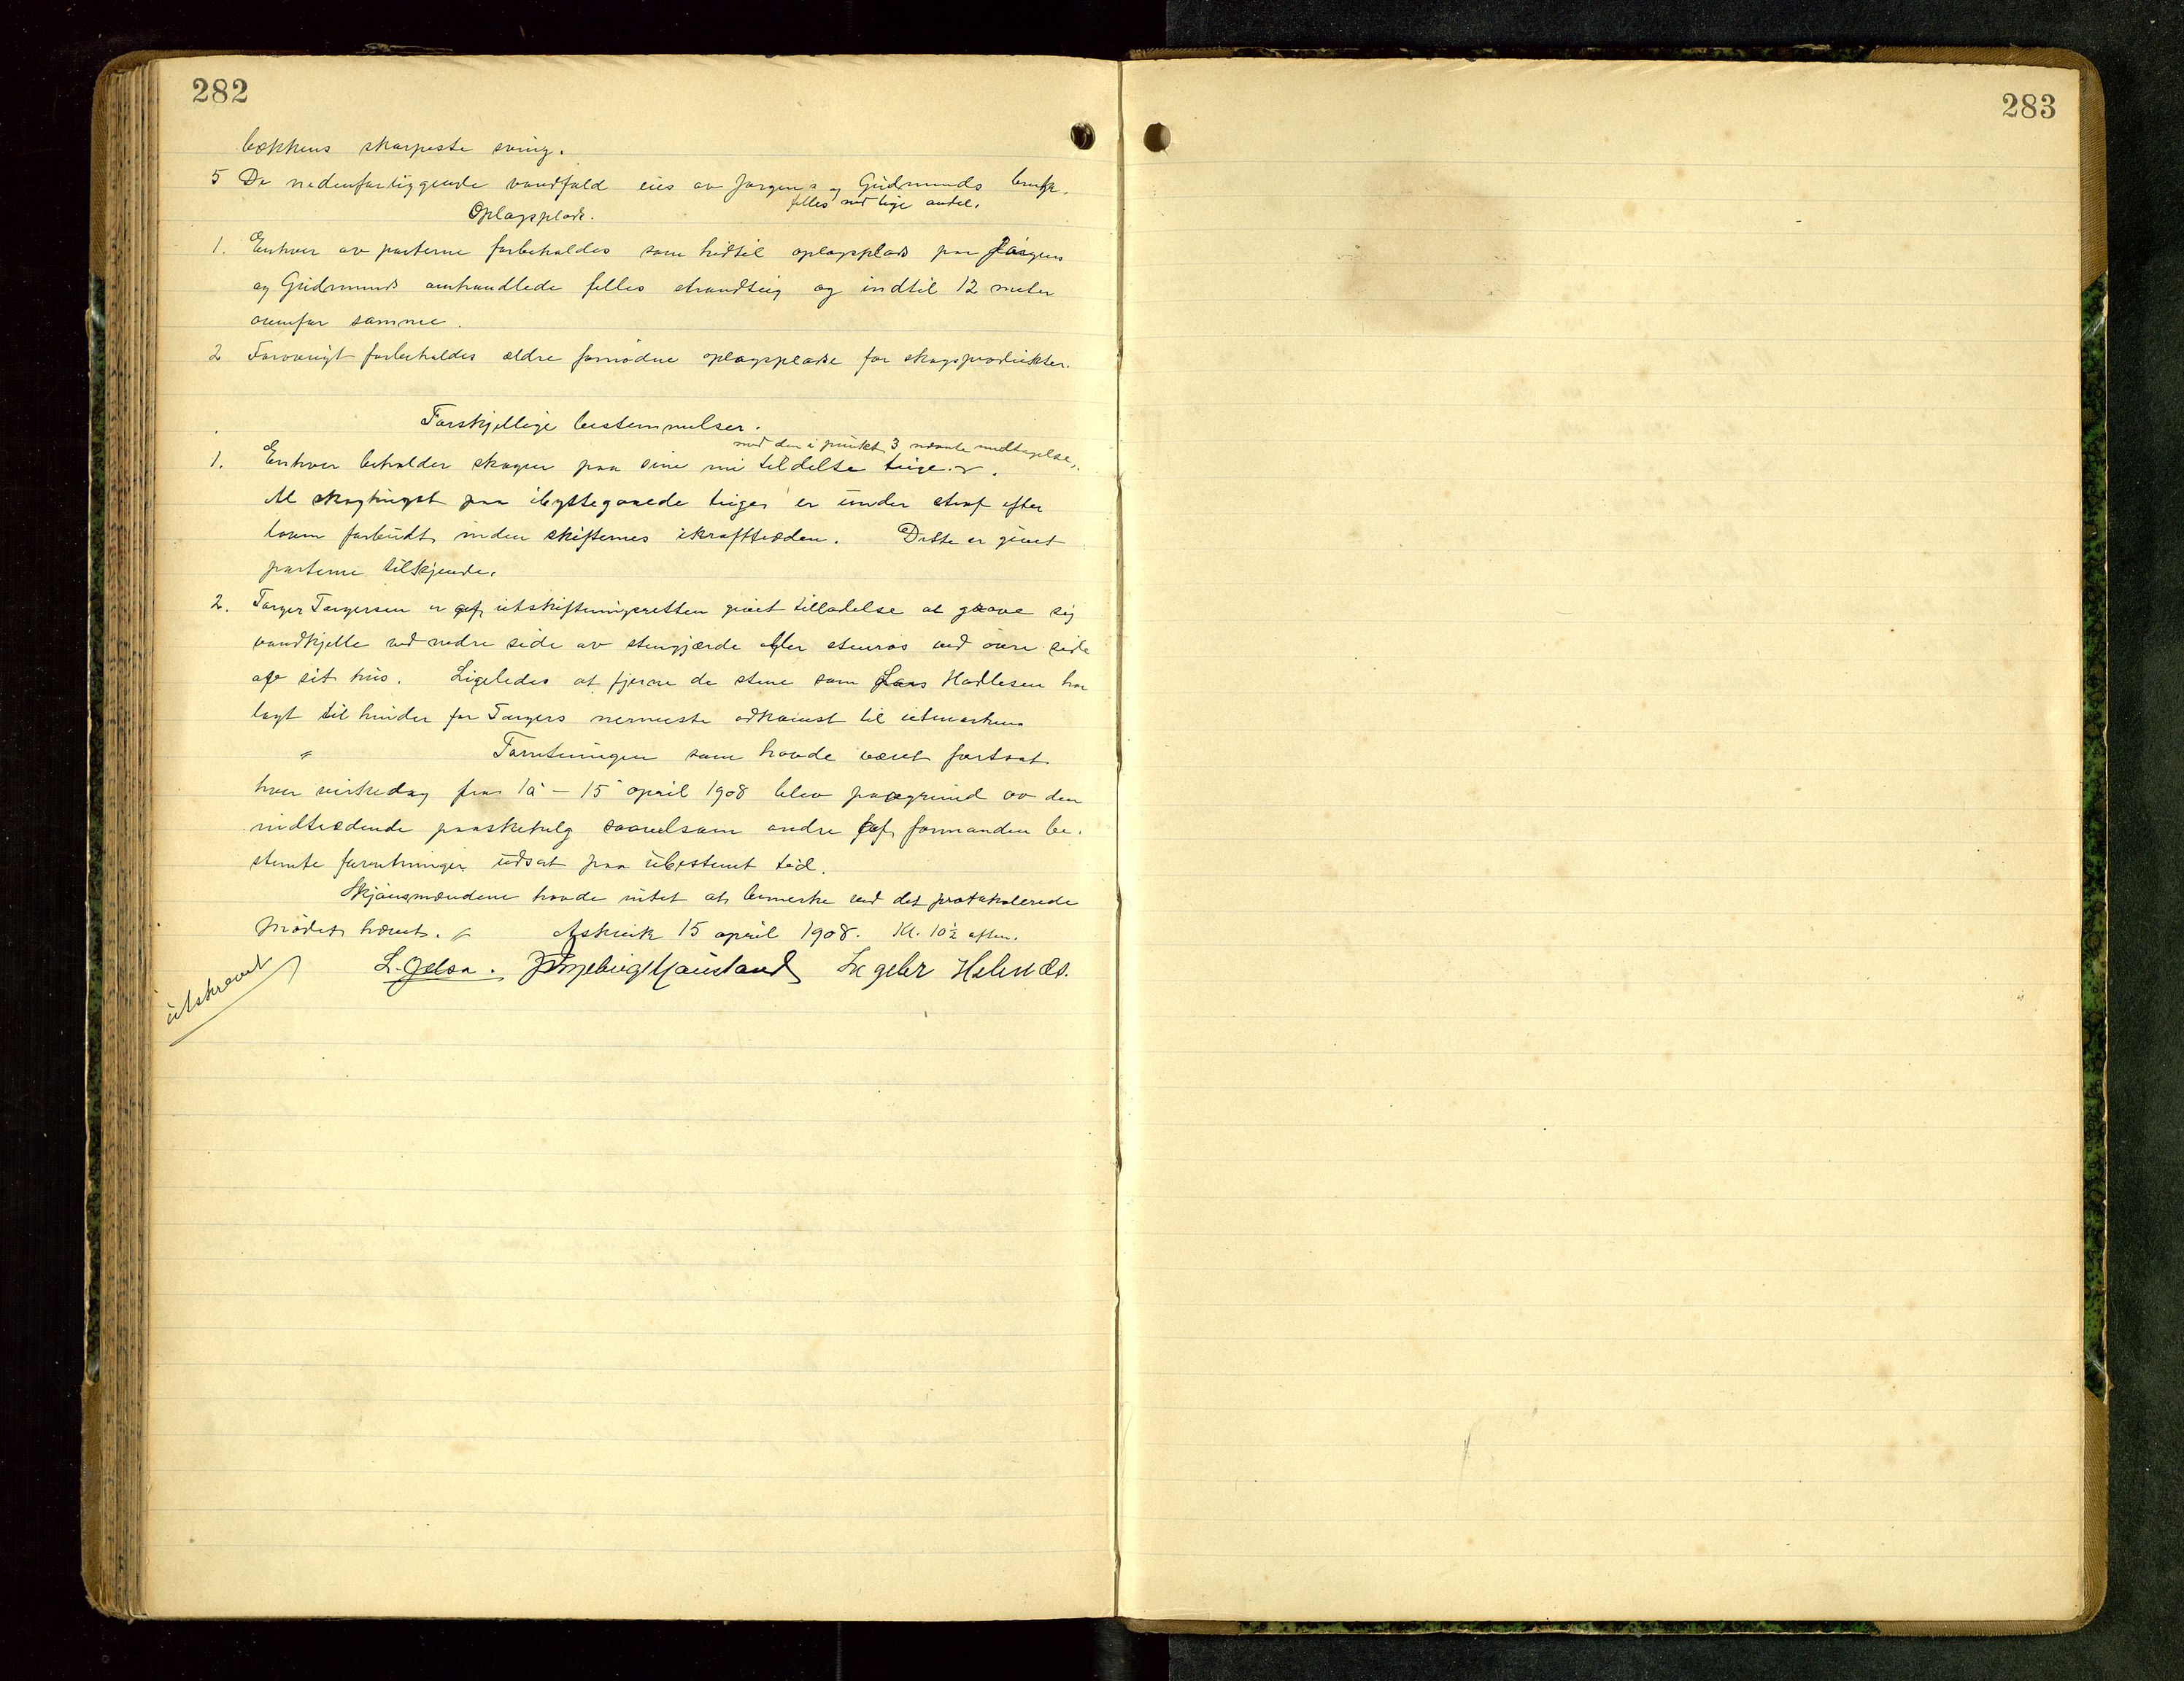 282
283
bækkens skarpeste sving.
5 De nedenforliggende vandfald eies av Jørgens og Gudmunds bruk.
fælles med lige andel.
Oplagsplads.
1. Enhver av parterne forbeholdes som hidtil oplagsplads paa Jørgens
og Gudmunds omhandlede felles strandteig og indtil 12 meter
ovenfor samme.
2 Forøvrigt forbeholdes ældre fornødne oplagspladse for skogsprodukter.
Forskjellige bestemmelser.
med den i punkt 3 nævnte undtagelse,
1. Enhver beholder skogen paa sine nu tildelte teige.
Al skoghugst paa ibyttegaaede teiger er under straf efter
loven forbudt inden skifternes ikrafttræden. Dette er givet
parterne tilkjende.
2. Torger Torgersen er af utskiftningsretten givet tilladelse at grave sig
vandkjelde ved nedre side av stengjærde eller stenrøs ved øvre side
af sit hus. Ligeledes at fjerne de stene som Lars Hadlesen har
lagt til hinder for Torgers nermeste adkomst til utmarken
" Forretningen som havde været fortsat
hver virkedag fra 1ä – 15 april 1908 blev paagrund av den
indtrædende paaskehelg saavelsom andre af formanden be-
stemte forretninger udsat paa ubestemt tid.
Skjønsmændene havde intet at bemerke ved det protokolerede
Mødet hævet. Askvik 15 april 1908. Kl. 10½ aften.
L. Jelsa.
utskrevet